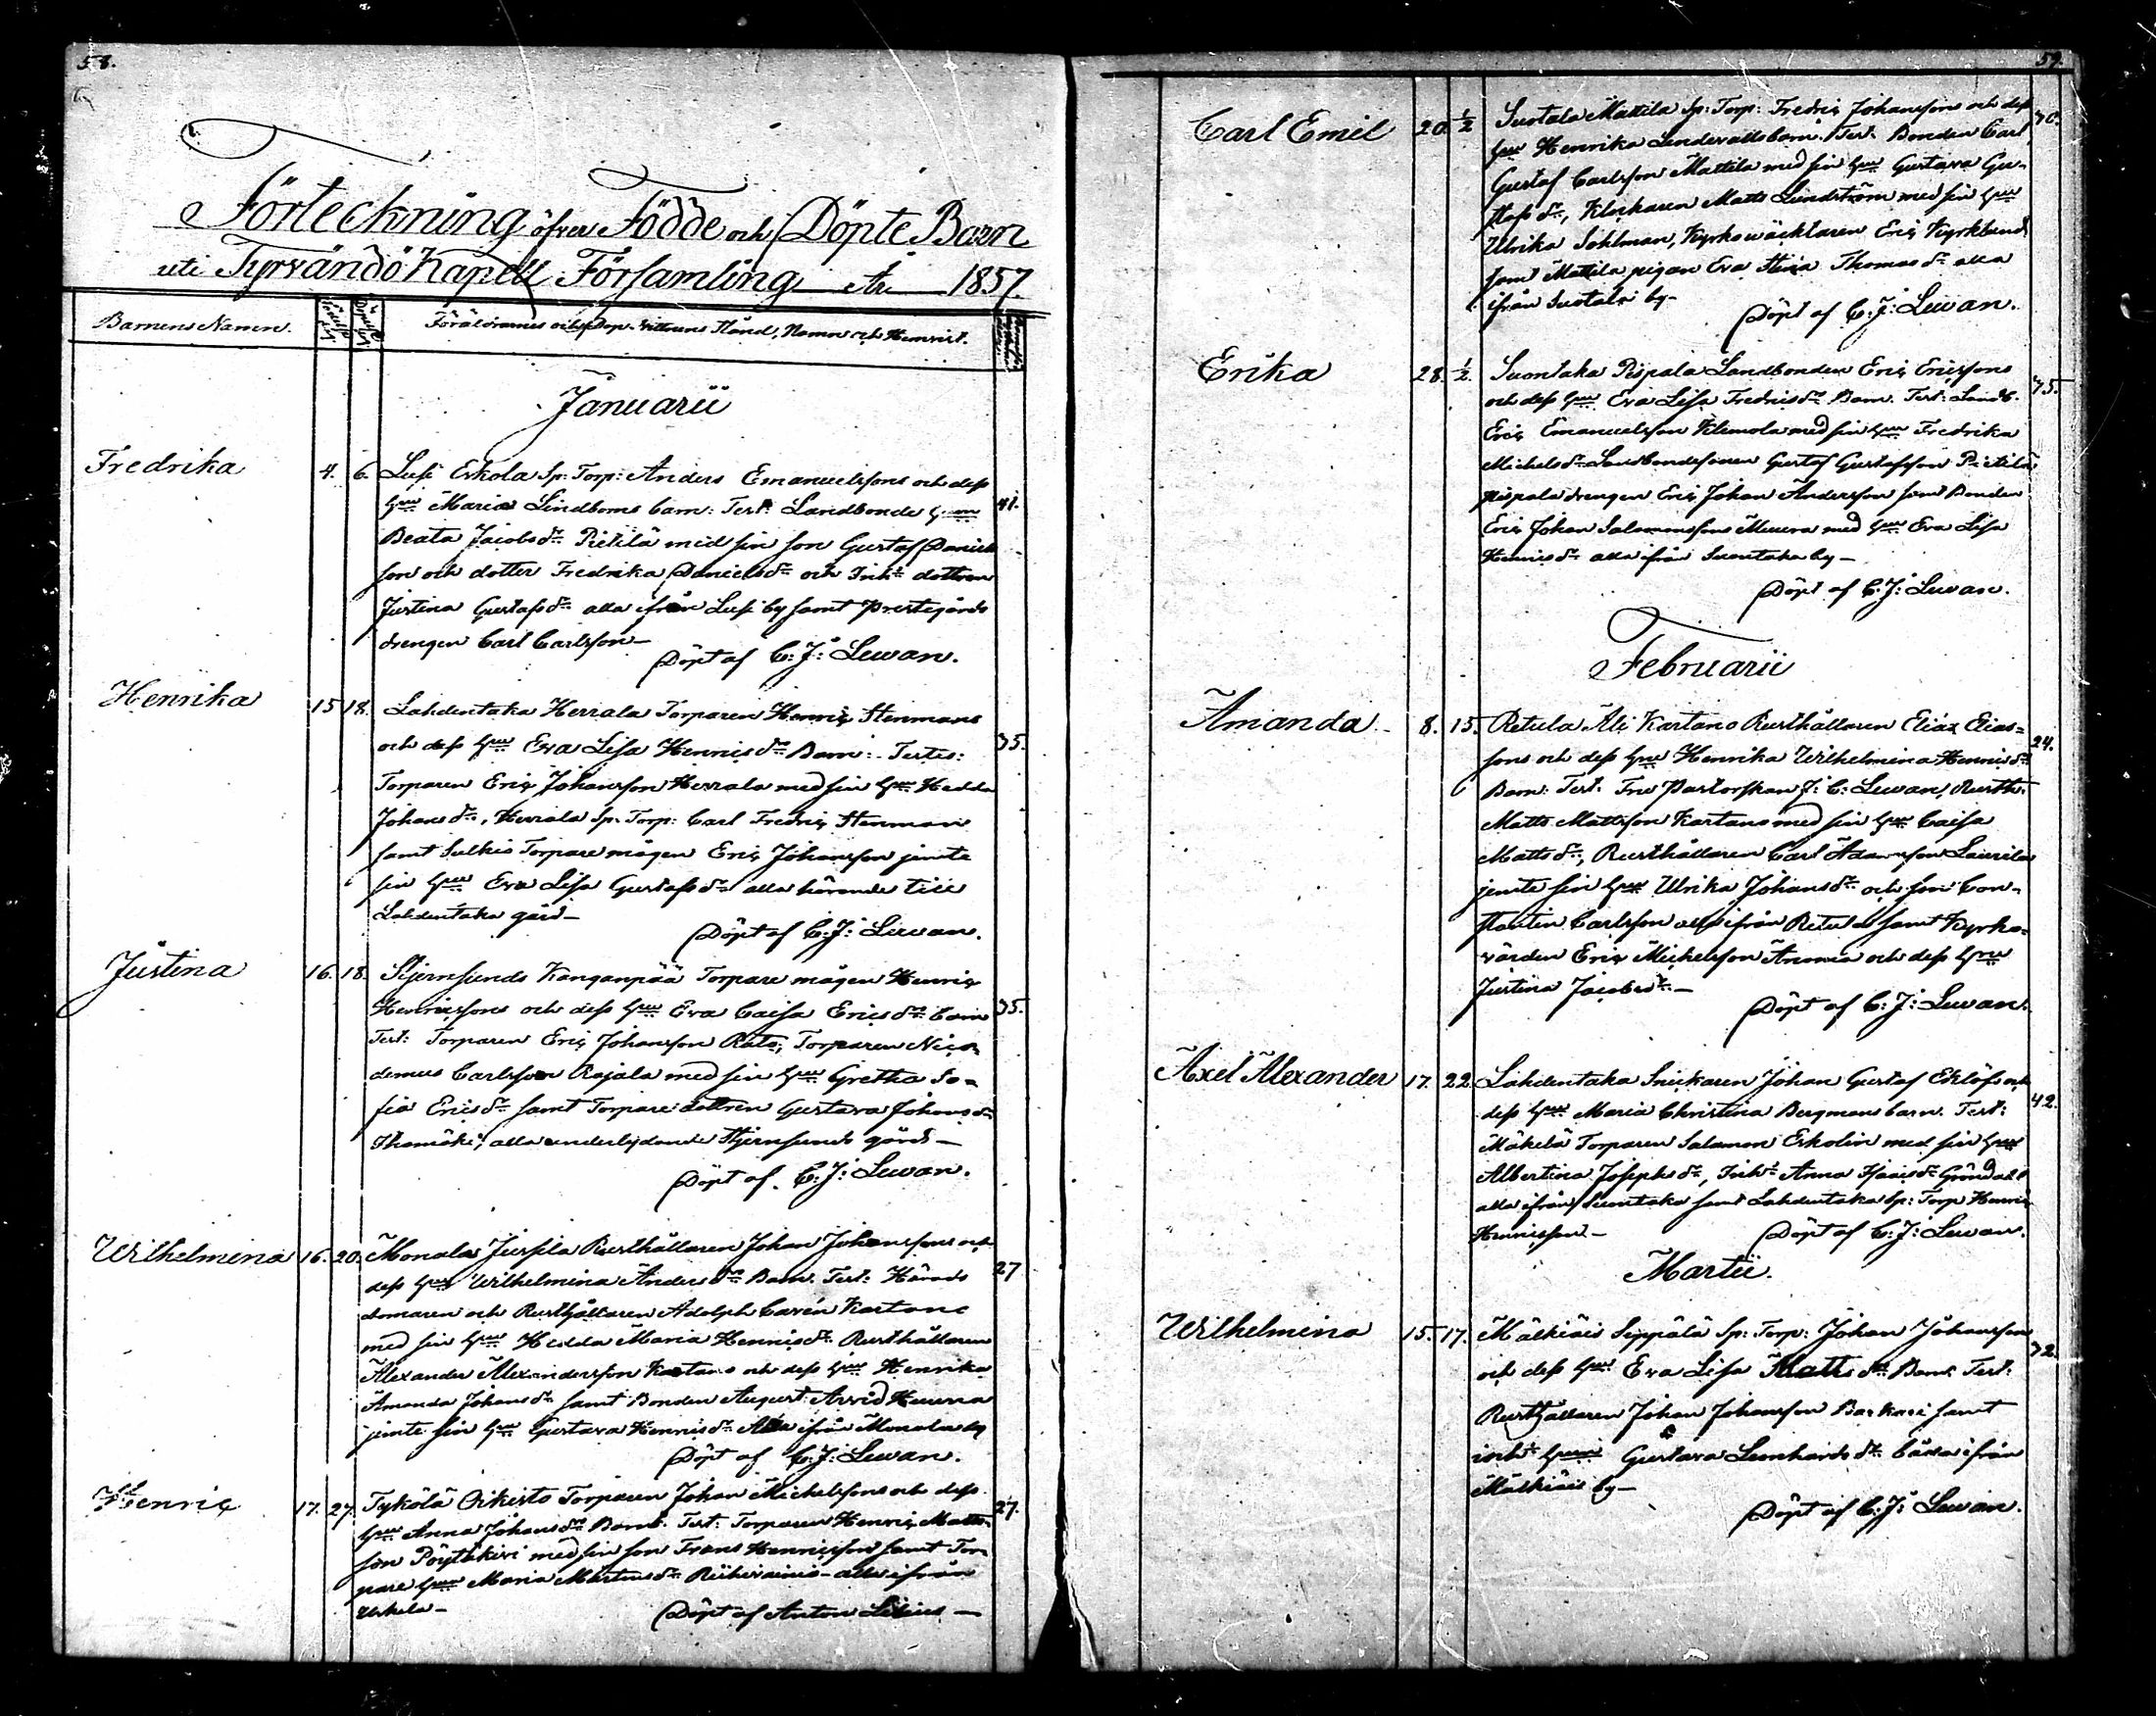 58.
Förteckning öfver Födde och Döpte Barn
uti Tyrvändö Kapell Församling År 1857.
Barnens Namn.
Föräldrarnes och Dop-vittnens Stånd, Namn och Hemvist.
Januarii
Fredrika 4. 6. Lusi Eskola Sp: Torp: Anders Emanuelssons och dess 41.
hru Maria Lindboms barn: Test: Landbonde hrun
Beata Jacobs dr Pietilä med sin son Gustaf Daniels
son och dotter Fredrika Daniels dr och Inh: dottren
Justina Gustafs dr alla ifrån Lusi by samt Prestegårds
drengen Carl Carlsson—
Döpt af C: J: Lewan.
Henrika 15 18. Lahdentaka Herrala Torparen Henric Stenmans
och dess hru Eva Lisa Henrics dr Barn: Testes: 35.
Torparen Eric Johansson Herrala med sin hru Hedda
Johans dr, Herrala Sp: Torp: Carl Fredric Stenman
samt Sulkis Torpare mågen Eric Johansson jemte
sin hru Eva Lisa Gustafs dr alla hörande till
Lahdentaka gård—
Döpt af C: J: Lewan.
Justina 16. 18. Stjernsunds Kanganpää Torpare mågen Henric
Henricssons och dess hru Eva Caisa Erics dr barn 35.
Test: Torparen Eric Johansson Rato, Torparen Nico-
demus Carlsson Rajala med sin hru Gretha So-
fia Erics dr samt Torpare dottren Gustava Johans dr
alla underlydande Stjernsunds gård—
Döpt af C: J: Lewan.
Wilhelmina 16. 20. Monala Jussila Rusthållaren Johan Johanssons och
dess hru Wilhelmina Anders dr Barn. Test: Härads 27
domaren och Rusthållaren Adolph Carén Kartano
med sin hru Hedda Maria Henrics dr Rusthållaren
Alexander Alexandersson Kartano och dess hru Henrika
Amanda Johans dr samt Bonden August Arvid
jemte sin hru Gustava Henrics dr Alla ifrån Monala by
Döpt af C: J: Lewan.
Henric 17. 27. Tykölä Oikisto Torparen Johan Michelssons och dess 27.
hru Anna Johans dr Barn. Test: Torparen Henric Matts-
son med sin son Frans Henricsson samt Tor-
pare hru Maria Mårtens dr alla ifrån
Döpt af Anton
59.
Carl Emil 20. 1/2 Suotala Mattila Sp: Torp: Fredric Johanssons och dess 30.
hru Henrika barn. Test: Bonden Carl
Gustaf Carlsson Mattila med sin hru Gustava Gu-
stafs dr, Klockaren Matts Lundström med sin hru
Ulrika Sohlman, Kyrkowäcktaren Eric Kyrklund
samt Mattila pigan Eva Stina Thomas dr alla
ifrån Suotala by—
Döpt af C: J: Lewan.
Erika 28. 1/2. Suontaka Pispala Landbonden Eric Ericssons
och dess hru Eva Lisa Fredrics dr Barn. Test: Landb. 35.
Eric Emanuelsson Klemola med sin hru Fredrika
Michels dr Landbondesonen Gustaf Gustafsson Pietilä
pispala drengen Eric Johan Andersson samt Bonden
Eric Johan Salomonssons med hru Eva Lisa
Henrics dr alla ifrån Suontaka by—
Döpt af C: J: Lewan.
Februarii
Amanda 8. 15. Retula Ali Kartano Rusthållaren Elias Elias-
sons och dess hru Henrika Wilhelmina Henrics dr 24.
Barn. Test: Fru Pastorskan J: C: Lewan, Rusth:
Matts Mattsson Kartano med sin hru Caisa
Matts dr, Rusthållaren Carl Adamsson Laurila
jemte sin hru Ulrika Johans dr och son Con-
stantin Carlsson alla ifrån Retula samt Kyrko-
värden Eric Michelsson Anomia och dess hru
Justina Jacobs dr—
Döpt af C: J: Lewan.
Axel Alexander 17. 22. Lahdentaka Snickaren Johan Gustaf Eklöfs och
dess hru Maria Christina Bergmans barn. Test: 42.
Mäkelä Torparen Salomon Eskolin med sin hru
Albertina Josephs dr, Inh: Anna Isaacs dr Gröndahl
alla ifrån Suontaka samt Lahdentaka Sp: Torp Henric
Henricsson—
Döpt af C: J: Lewan.
Martii.
Wilhelmina 15. 17. Mälkiäis Seppälä Sp: Torp: Johan Johansson
och dess hru Eva Lisa Matts dr Barn. Test: 32.
Rusthållaren Johan Johansson Barkari samt
inh: hrun Gustava Leonhards dr båda ifrån
Mälkiäis by—
Döpt af C: J: Lewan.